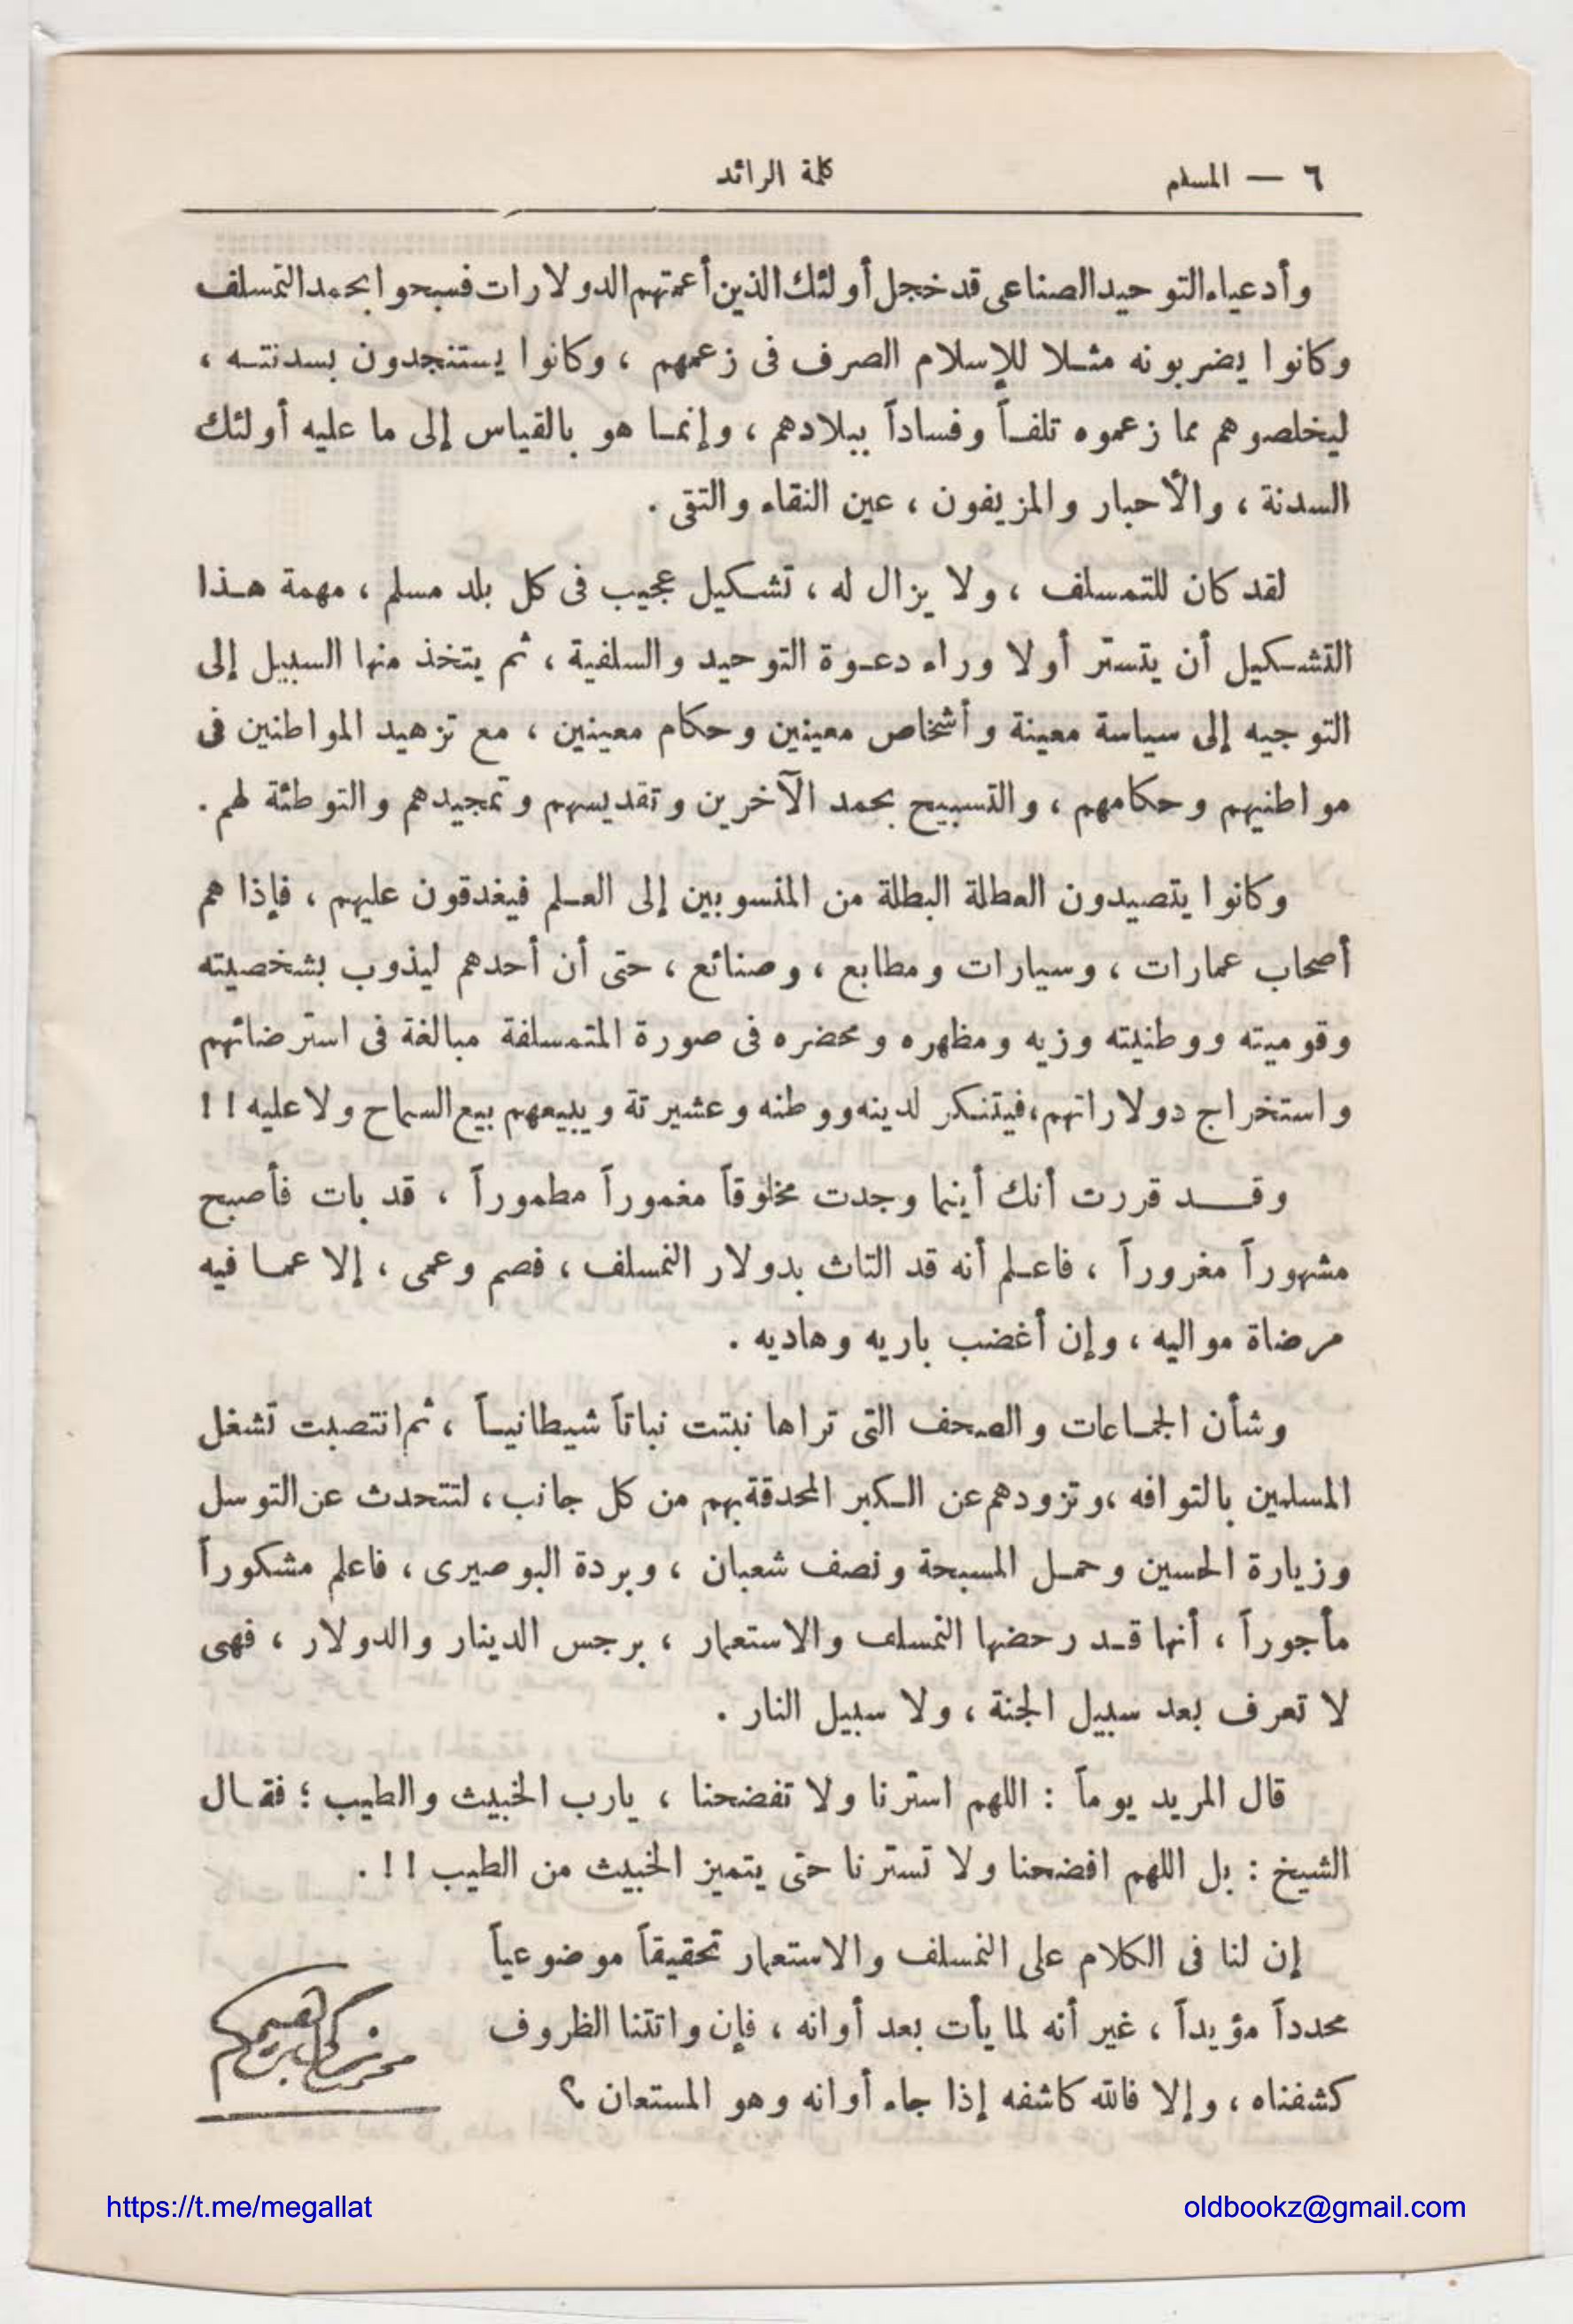 ٦ — المسلم
كلمة الرائد
وأدعياء التوحيد الصناعى قد خجل أولئك الذين أعمتهم الدولارات فسبحوا بحمد التمسلف
وكانوا يضربونه مثلا للإسلام الصرف فى زعمهم ، وكانوا يستنجدون بسدنته ،
ليخلصوهم مما زعموه تلفاً وفساداً ببلادهم ، وإنما هو بالقياس إلى ما عليه أولئك
السدنة ، والأحبار والمزيفون ، عين النقاء والتقى .
لقد كان للتمسلف ، ولا يزال له ، تشكيل عجيب فى كل بلد مسلم ، مهمة هذا
التشكيل أن يتستر أولا وراء دعوة التوحيد والسلفية ، ثم يتخذ منها السبيل إلى
التوجيه إلى سياسة معينة وأشخاص معينين وحكام معينين ، مع تزهيد المواطنين فى
مواطنيهم وحكامهم ، والتسبيح بحمد الآخرين وتقديسهم وتمجيدهم والتوطئة لهم .
وكانوا يتصيدون العطلة البطلة من المنسوبين إلى العلم فيغدقون عليهم ، فإذا هم
أصحاب عمارات ، وسيارات ومطابع ، وصنائع ، حتى أن أحدهم ليذوب بشخصيته
وقوميته ووطنيته وزيه ومظهره ومحضره فى صورة المتمسلفة مبالغة فى استرضائهم
واستخراج دولاراتهم ، فيتنكر لدينه ووطنه وعشيرتة ويبيعهم بيع السماح ولا عليه !!
وقد قررت أنك أينما وجدت مخلوقاً مغموراً مطموراً ، قد بات فأصبح
مشهوراً مغروراً ، فاعلم أنه قد التاث بدولار التمسلف ، فصم وعمى ، إلا عما فيه
مرضاة مواليه ، وإن أغضب باريه وهاديه .
وشأن الجماعات والصحف التى تراها نبتت نباتاً شيطانياً ، ثم انتصبت تشغل
المسلمين بالتوافه ، وتزودهم عن الكبر المحدقة بهم من كل جانب ، لتتحدث عن التوسل
وزيارة الحسين وحمل المسبحة ونصف شعبان ، وبردة البوصيرى ، فاعلم مشكوراً
مأجوراً ، أنها قد رحضها التمسلف والاستعمار ، برجس الدينار والدولار ، فهى
لا تعرف بعد سبيل الجنة ، ولا سبيل النار .
قال المريد يوماً : اللهم استرنا ولا تفضحنا ، يارب الخبيث والطيب ؛ فقال
الشيخ : بل اللهم افضحنا ولا تسترنا حتى يتميز الخبيث من الطيب !! .
إن لنا فى الكلام على التمسلف والاستعمار تحقيقاً موضوعياً
محدداً مؤيداً ، غير أنه لما يأت بعد أوانه ، فإن واتتنا الظروف
كشفناه ، وإلا فالله كاشفه إذا جاء أوانه وهو المستعان ؟
محمد زكى إبراهيم
https://t.me/megallat
oldbookz@gmail.com